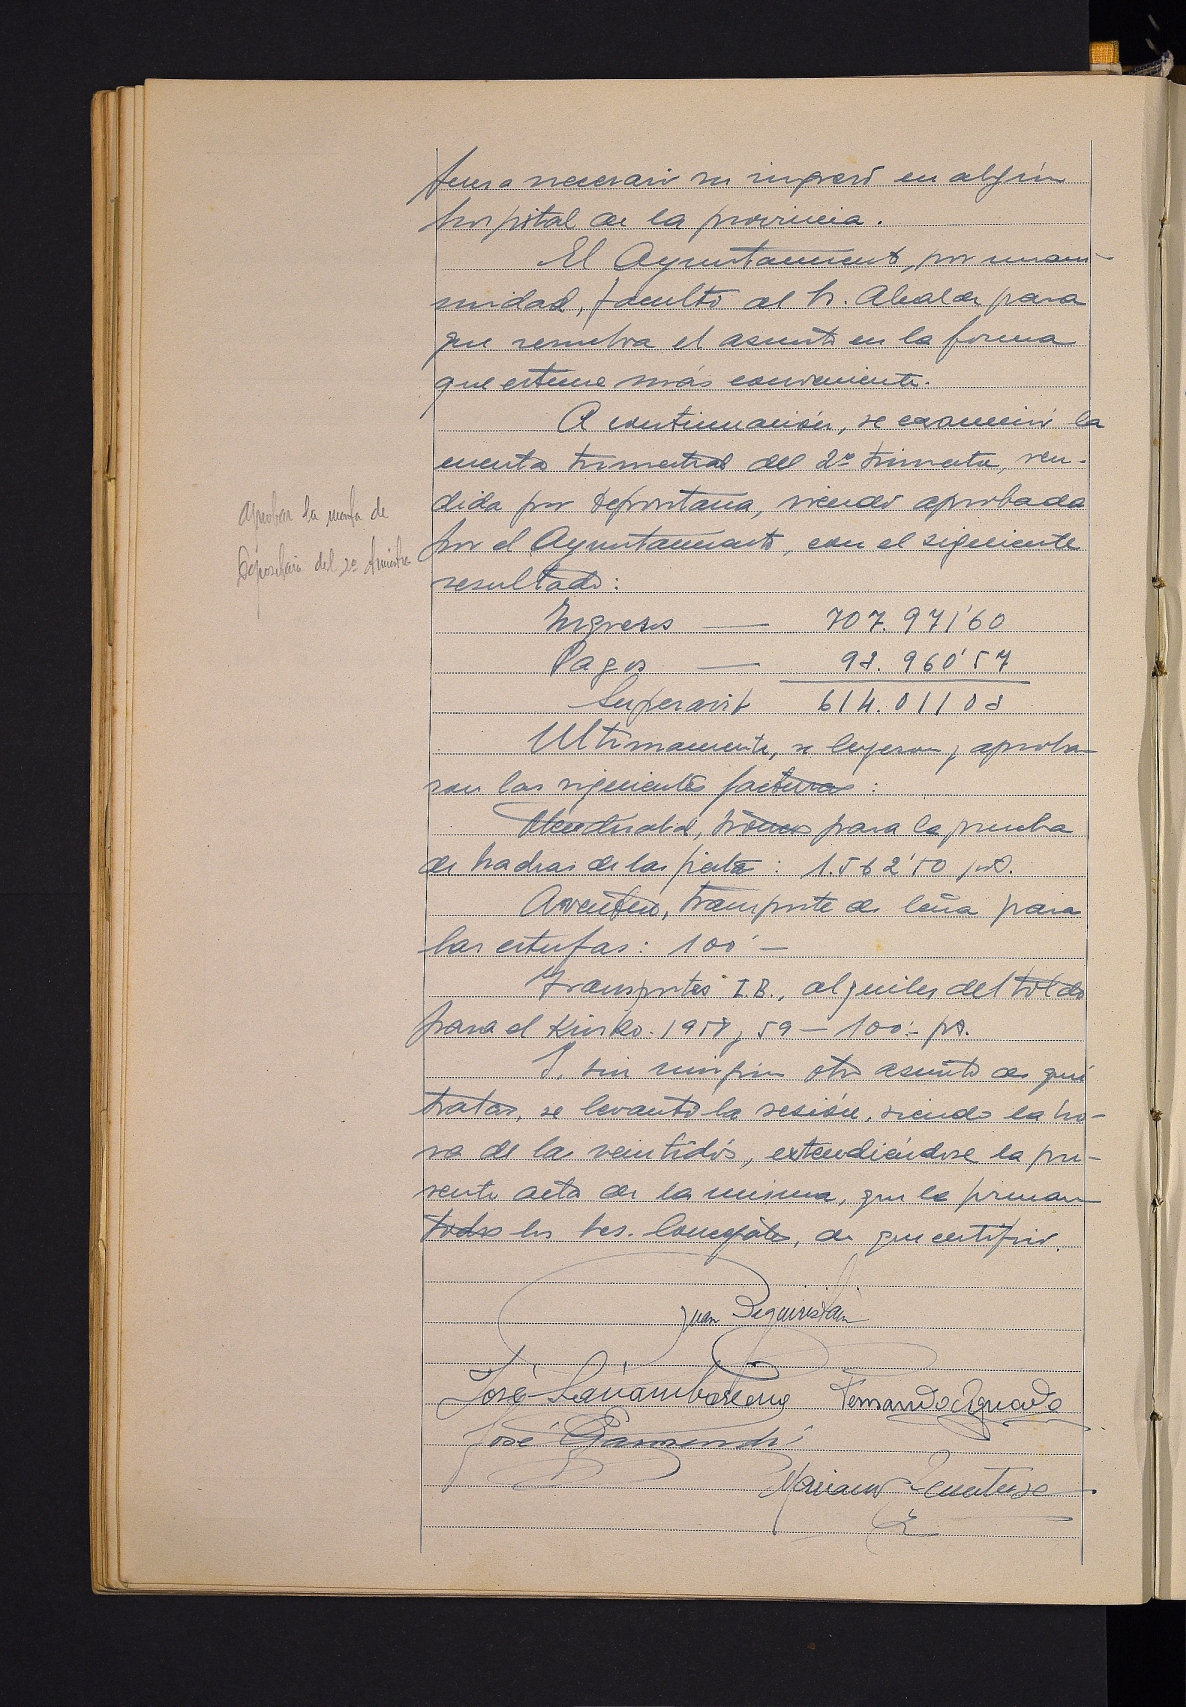 fuera necesario su ingreso en algún
hospital de la provincia.
El Ayuntamiento, por unani-
midad, facultó al Sr. Alcalde para
que resuelva el asunto en la forma
que estime más conveniente.
A continuación, se examinó la
cuenta trimestral del 2º trimestre, ren-
dida por Depositaria, siendo aprobada
por el Ayuntamiento, con el siguiente
resultado:
Aprobar la cuenta de
Depositaria del 2º trimestre
Ingresos — 707.971'60
Pagos — 93.960'57
Superavit 614.011 03
Ultimamente, se leyeron y aproba-
ron las siguientes facturas:
para la prueba
de de las fiestas: 1.562'50 pts.
transporte de leña para
las estufas: 100'—
Transportes I.B., alquiler del toldo
para el Kiosko. 1958 y 59 — 100'- pts.
Y sin ningún otro asunto de qué
tratar, se levantó la sesión, siendo la ho-
ra de las veintidós, extendiéndose la pre-
sente acta de la misma, que la firman
todos los Sres. Concejales, de que certifico.
Juan Beguiristain
José Lasarte Fernando Aguado
José Garmendi
Mariano